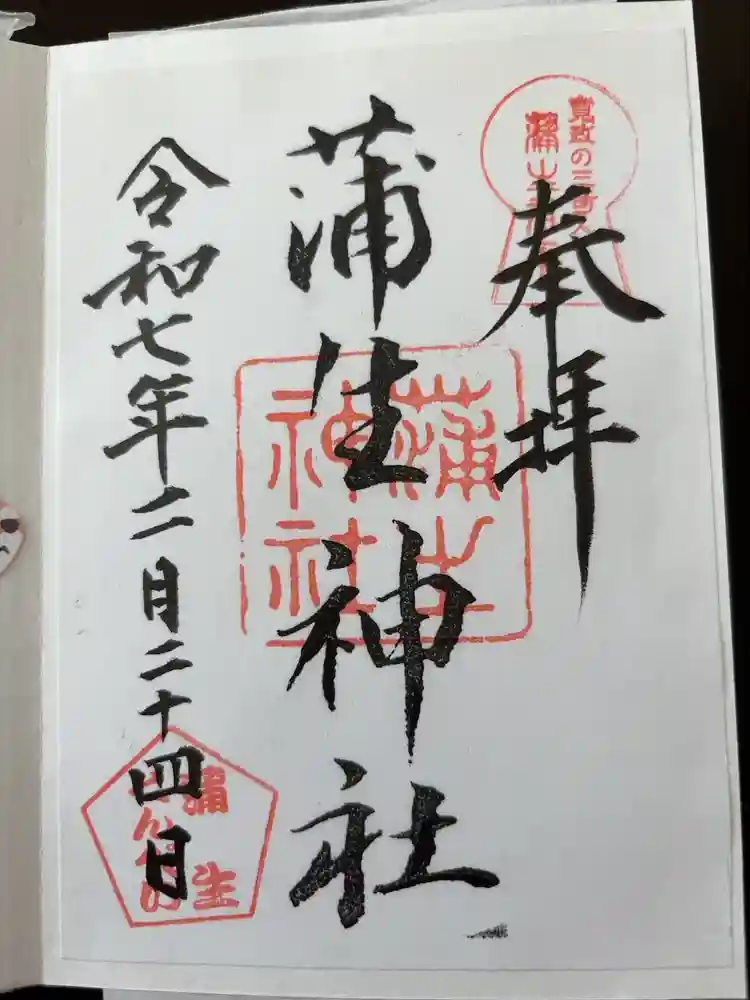 奉拝
寛政の三奇人
蒲生
蒲生神社
蒲生
神社
令和七年二月二十四日
蒲生